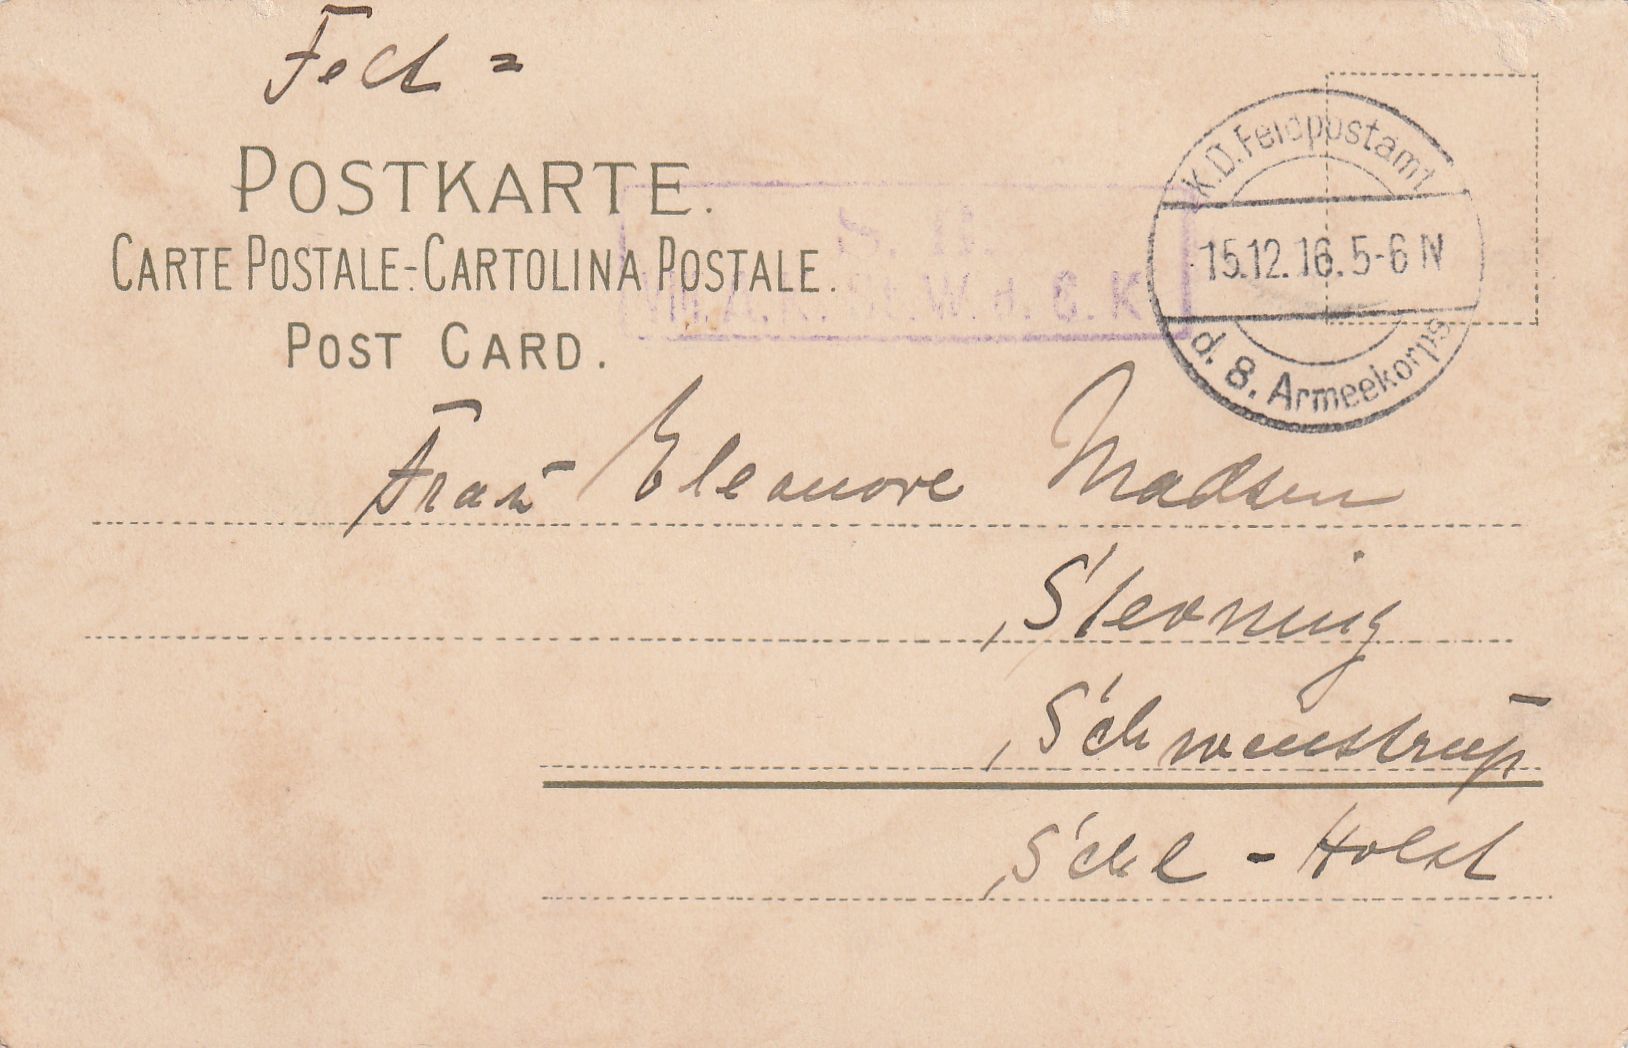 Feld =
POSTKARTE.
CARTE POSTALE-CARTOLINA POSTALE.
POST CARD.
K.D. Feldpostamt
15.12.16. 5-6 N
d. 8. Armeekorps
S. B.
VIII. A.K. St. W. d. G. K
Frau Eleonore Madsen
Stevning
Schwenstrup
Schl - Holst